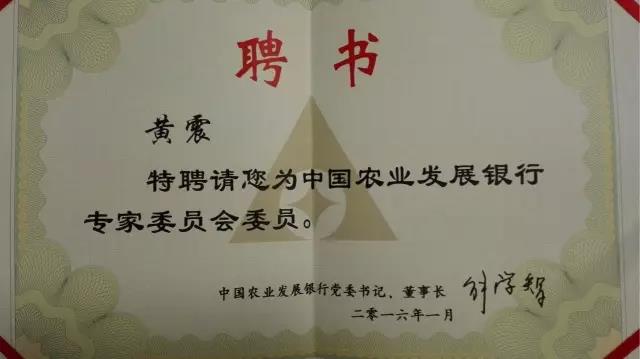 聘书
黄震
特聘请您为中国农业发展银行
专家委员会委员。
中国农业发展银行党委书记、董事长
二零一六年一月